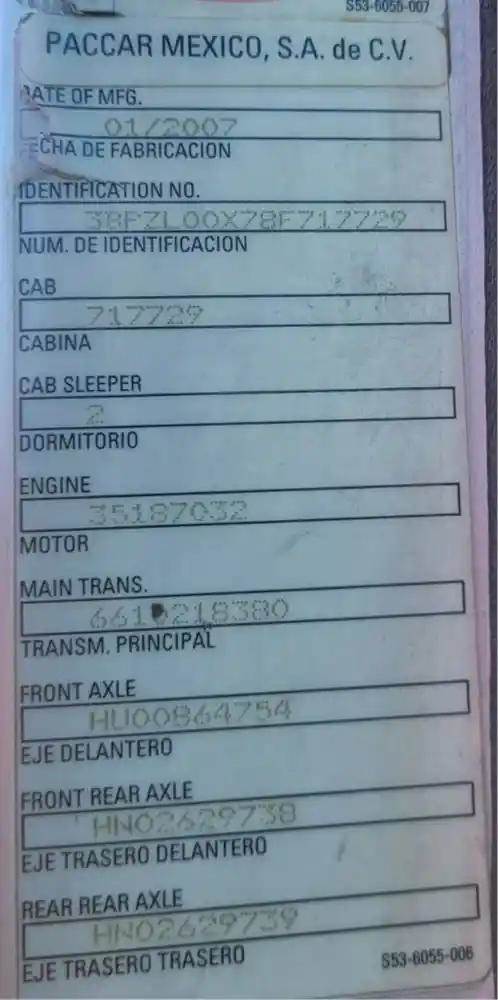 S53-6055-007
PACCAR MEXICO, S.A. de C.V.
DATE OF MFG.
01/2007
FECHA DE FABRICACION
IDENTIFICATION NO.
3BPZL00X78F717729
NUM. DE IDENTIFICACION
CAB
717729
CABINA
CAB SLEEPER
2
DORMITORIO
ENGINE
35187032
MOTOR
MAIN TRANS.
TRANSM. PRINCIPAL
FRONT AXLE
HU00864754
EJE DELANTERO
FRONT REAR AXLE
HN02629738
EJE TRASERO DELANTERO
REAR REAR AXLE
HN02629739
EJE TRASERO TRASERO
S53-6055-006